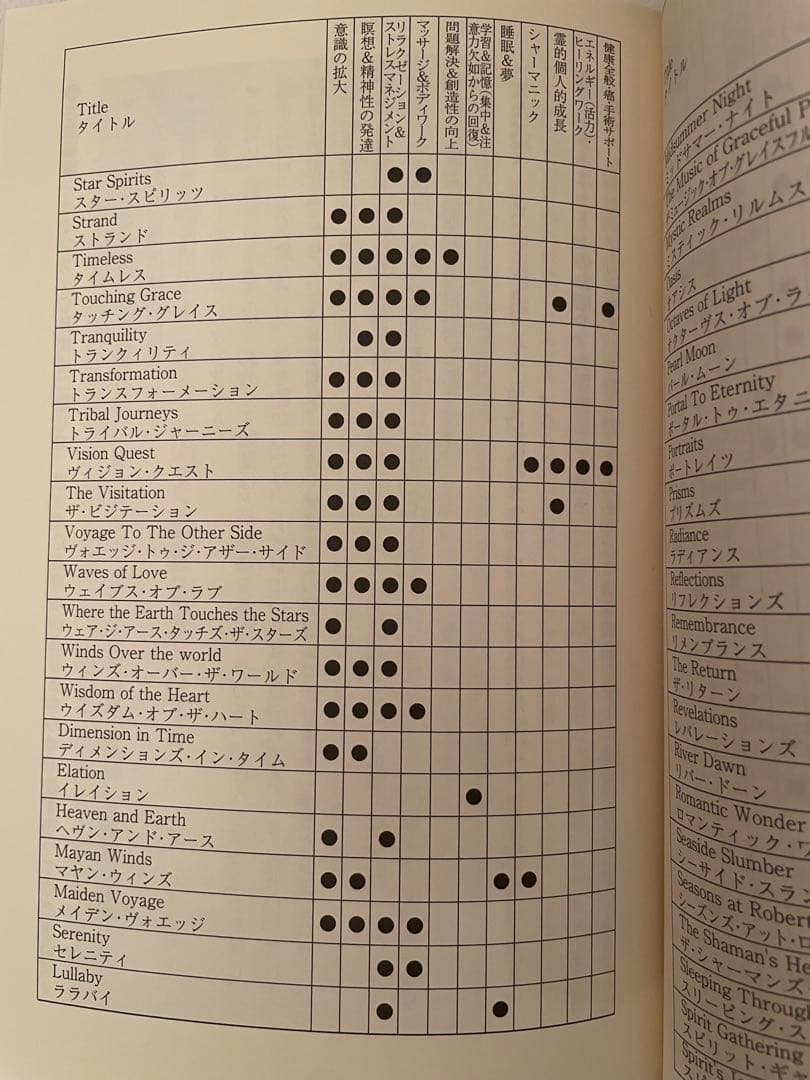 Title
タイトル
意識の拡大
瞑想&精神性の発達
リラクゼーション&
ストレスマネジメント
マッサージ&ボディワーク
問題解決&創造性の向上
学習&記憶(集中&注
意力欠如からの回復)
睡眠&夢
シャーマニック
霊的個人的成長
エネルギー(活力)・
ヒーリングワーク
健康全般・癌・手術サポート
Star Spirits
スター・スピリッツ
Strand
ストランド
Timeless
タイムレス
Touching Grace
タッチング・グレイス
Tranquility
トランクィリティ
Transformation
トランスフォーメーション
Tribal Journeys
トライバル・ジャーニーズ
Vision Quest
ヴィジョン・クエスト
The Visitation
ザ・ビジテーション
Voyage To The Other Side
ヴォエッジ・トゥ・ジ・アザー・サイド
Waves of Love
ウェイブス・オブ・ラブ
Where the Earth Touches the Stars
ウェア・ジ・アース・タッチズ・ザ・スターズ
Winds Over the world
ウィンズ・オーバー・ザ・ワールド
Wisdom of the Heart
ウイズダム・オブ・ザ・ハート
Dimension in Time
ディメンションズ・イン・タイム
Elation
イレイション
Heaven and Earth
ヘヴン・アンド・アース
Mayan Winds
マヤン・ウィンズ
Maiden Voyage
メイデン・ヴォエッジ
Serenity
セレニティ
Lullaby
ララバイ
Midsummer Night
ミッドサマー・ナイト
The Music of Graceful
ザ・ミュージック・オブ・グレイスフル
Mystic Realms
ミスティック・リルムス
Oasis
オアシス
Octaves of Light
オクターヴス・オブ・ラ
Pearl Moon
パール・ムーン
Portal To Eternity
ポータル・トゥ・エタニ
Portraits
ポートレイツ
Prisms
プリズムズ
Radiance
ラディアンス
Reflections
リフレクションズ
Remembrance
リメンブランス
The Return
ザ・リターン
Revelations
レバレーションズ
River Dawn
リバー・ドーン
Romantic Wonder
ロマンティック・ワ
Seaside Slumber
シーサイド・スラン
Seasons at Robert
シーズンズ・アット・ロ
The Shaman's He
ザ・シャーマンズ
Sleeping Through
スリーピング・ス
Spirit Gathering
スピリット・ギャ
Spirit's